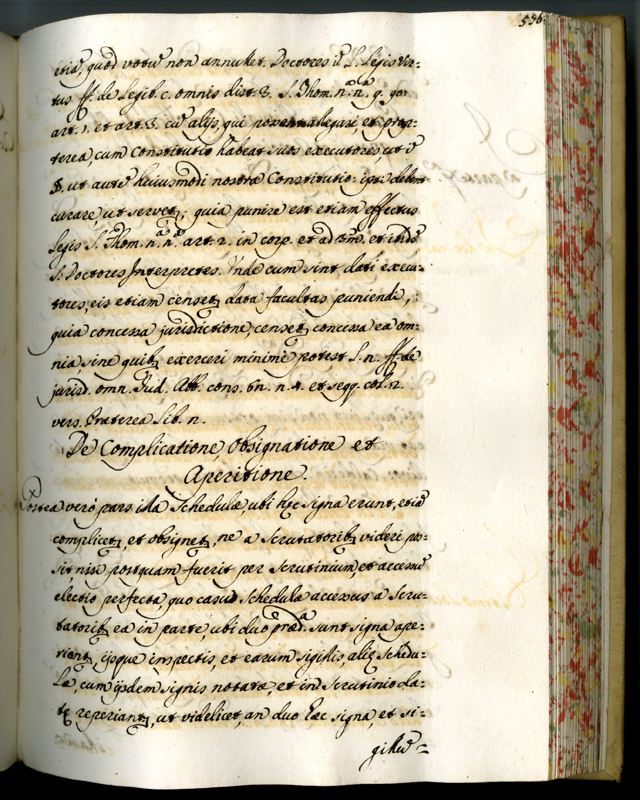 536.
etiã, quod votũ non annullet. Doctores ĩ L. Legis vir-
tus. ff. de Legib. c. omnis dist. 3. S. Thom. n. n. q. 90.
art. 1. et art. 3. cũ alijs, qui possent allegari, et prop-
terea, cum Constitutio habeat suos executores, ut ĩ
§. ut autẽ huiusmodi nostræ Constitutio: ipsi debent
curare, ut servet; quia punire est etiam effectus
Legis S. Thom. n. n. art. 2. in corp. et ad 3m. et ibid.
S. Doctores Interpretes. Unde cum sint dati execu-
tores, eis etiam censet data facultas puniendi,
quia concessa jurisdictione, censet concessa ea om-
nia, sine quib exerceri minimè potest L. n. ff. de
jurisd. omn. Jud. Abb. cons. 6n. n. 4. et seqq. col. 2.
vers. Præterea Lib. n.
De Complicatione, Obsignatione et
Aperitione.
Postea verò pars illa Schedulæ, ubi hæc signa erunt, etiã
complicet, et obsignet, ne a Scrutatorib videri pos-
sit, nisi postquam fuerit per Scrutinium, et accessũ
electio perfecta, quo casu Schedulæ accessus a Scru-
tatorib ea in parte, ubi duo præd. sunt signa ape-
riant, ijsque inspectis, et earum sigillis, aliæ Schedu-
læ, cum ijsdem signis notatæ, et in Scrutinio da-
tæ reperiant, ut videlicet, an duo hæc signa, et si-
gillũ